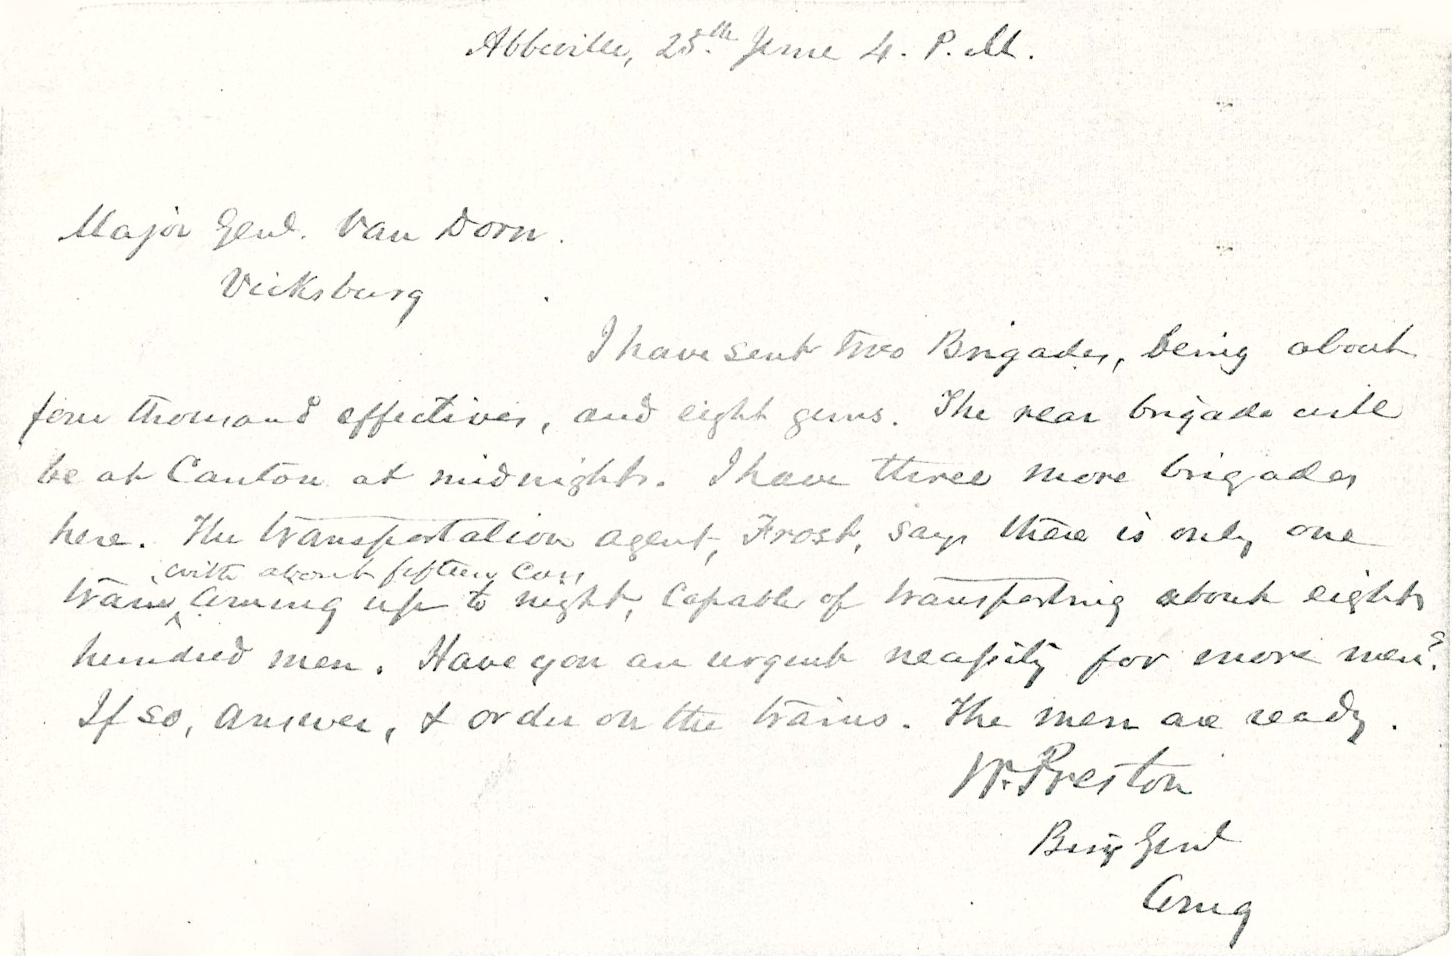 Abbeville, 25th June 4. P.M.
Major Genl. Van Dorn.
Vicksburg
I have sent two Brigades, being about
four thousand effectives, and eight guns. The rear brigade will
be at Canton at midnight. I have three more brigades
here. The transportation agent, Frost, says there is only one
with about fifteen cars
train coming up to night, capable of transporting about eight
hundred men. Have you an urgent necessity for more men?
If so, answer, & order on the trains. The men are ready.
W. Preston
Brig Genl
Comg